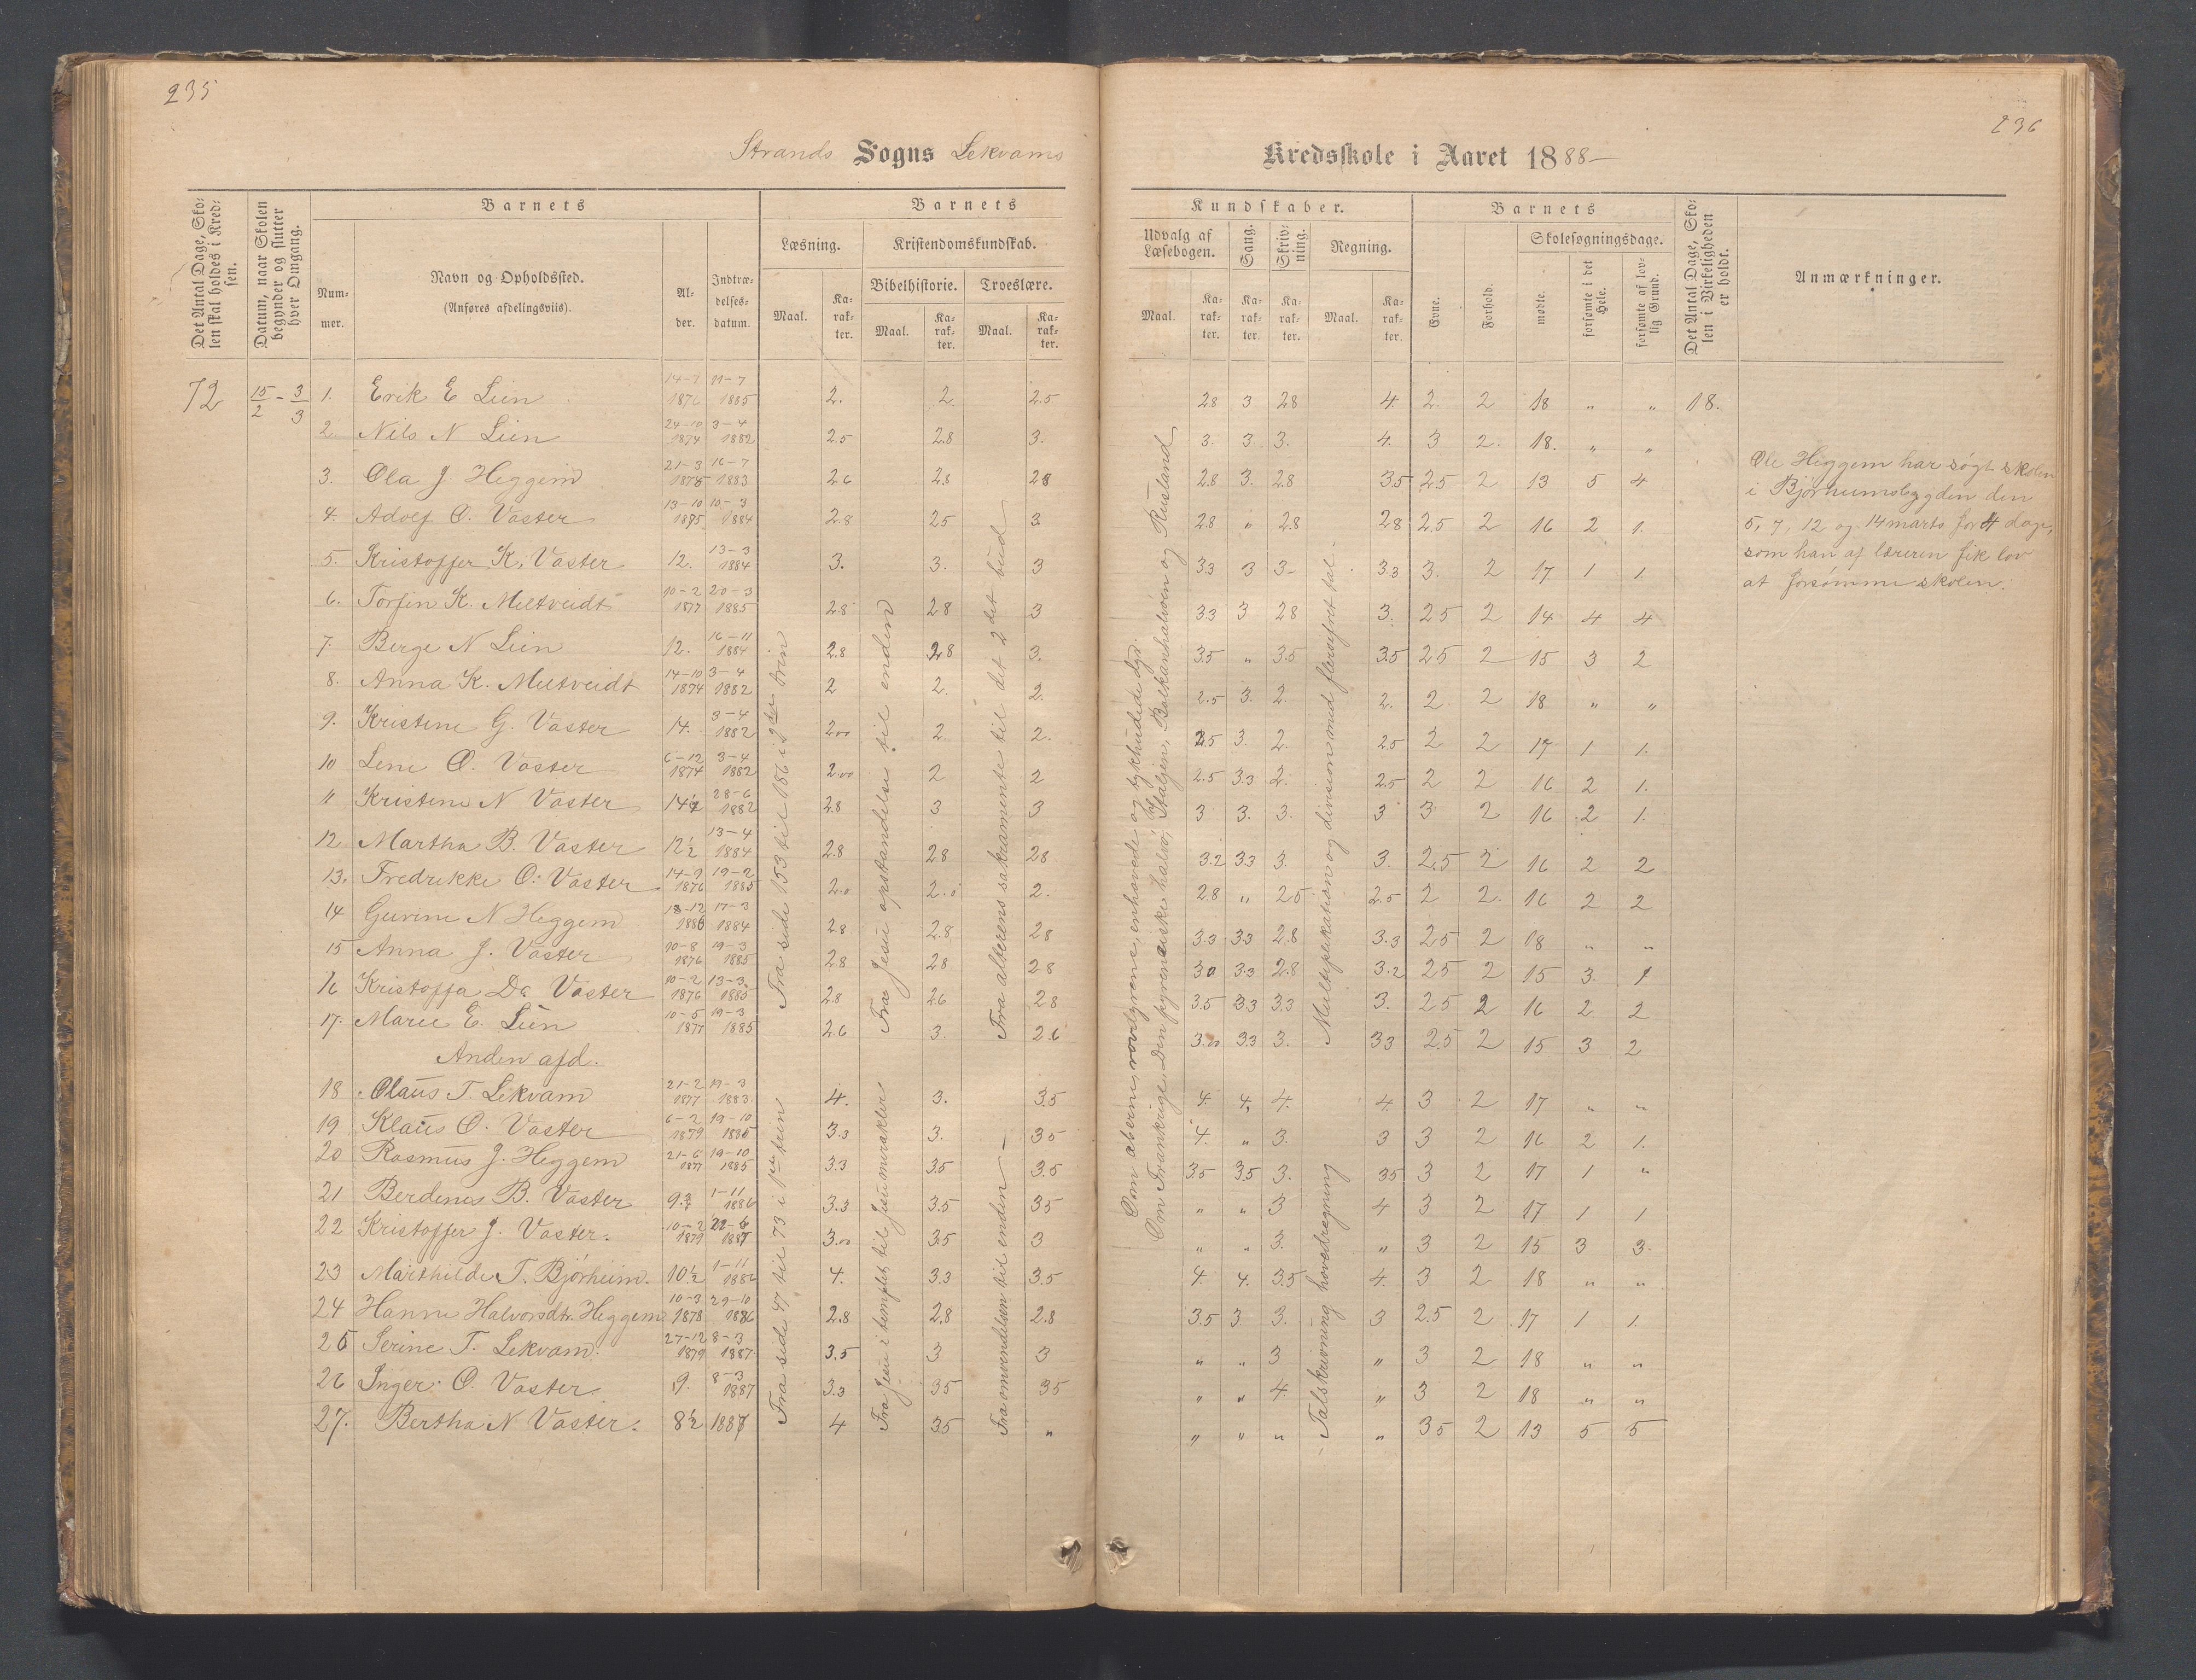 235
236
Strands Sogns Lekvams
Kredsskole i Aaret 1888–
Det Antal Dage, Skolen skal holdes i Kredsen.
Datum, naar Skolen begynder og slutter hver Omgang.
Barnets
Nummer.
Navn og Opholdssted.
(Anføres afdelingsviis).
Alder.
Indtrædelsesdatum.
Barnets
Læsning.
Kristendomskundskab.
Bibelhistorie.
Troeslære.
Maal.
Karakter.
Maal.
Karakter.
Maal.
Karakter.
Kundskaber.
Udvalg af Læsebogen.
Sang.
Skrivning.
Regning.
Maal.
Karakter.
Karakter.
Karakter.
Maal.
Karakter.
Barnets
Evne.
Forhold.
Skolesøgningsdage.
mødte.
forsømte i det Hele.
forsømte af lovlig Grund.
Det Antal Dage, Skolen i Virkeligheden er holdt.
Anmærkninger.
72 15/2 – 3/3
1. Erik E Lien 14-7 1876 11-7 1885 2. 2 2.5 28 3 28 4. 2. 2 18 " " 18.
2. Nils N Lien 24-10 1874 3-4 1882 2.5 2.8 3. 3. 3. 3. 4. 3 2. 18. " "
3. Ola J. Heggem 21-3 1875 16-7 1883 2.6 2.8 28 2.8 3. 2.8 3.5 2.5 2 13 5 4
4. Adolf O. Vaster 13-10 1875 10-3 1884 2.8 25 3 2.8 " 2.8 28 2.5 2 16 2 1.
5. Kristoffer K. Vaster 12. 13-3 1884 3. 3. 3 33 3 3- 3.3 3. 2 17 1 1.
6. Torfin K. Meltveidt 10-2 1877 20-3 1885 2.8 28 3 3.3 3 28 3. 25 2 14 4 4
7. Berge N Lien 12. 16-11 1884 2.8 28 3. 3.5 " 3.5 3.5 25 2 15 3 2
8. Anna K. Meltveidt 14-10 1874 3-4 1882 2 2. 2. 2.5 3. 2. 2. 2 2 18 " "
9. Kristine G. Vaster 14. 3-4 1882 2.00 2. 2. 2.5 3. 2. 25 2 2 17 1 1.
10 Lene O. Vaster 6-12 1874 3-4 1882 2.00 2 2 2.5 3.3 2. 2.5 2 2 16 2 1.
11 Kristine N Vaster 14 1/2 28-6 1882 2.8 3 3 3 3. 3. 3 3 2 16 2 1.
12 Martha B. Vaster 12 1/2 13-4 1884 2.8 28 28 3.2 33 3. 3. 2.5 2 16 2 2
13. Fredrikke O. Vaster 14-2 1876 19-2 1885 2.0 2.0 2. 2.8 " 25 2.5 2 2. 16 2 2
14 Gurine N Heggem 18-12 1886 17-3 1884 2.8 2.8 28 3.3 33 2.8 3.3 25 2 18 " "
15 Anna J. Vaster 10-8 1876 19-3 1885 28 28 28 30 3.3 2.8 3.2 25 2 15 3. 1
16 Kristoffa Da Vaster 10-2 1876 13-3 1885 2.8 26 28 3.5 3.3 3.3 3. 25 2 16 2 2
17. Marie E. Lien 10-5 1877 19-3 1885 2.6 3. 2.6 3.00 3.3 3. 33 2.5 2 15 3 2
Anden afd.
18 Olaus T. Lekvam 21-2 1877 19-3 1883 4. 3. 3.5 4. 4. 4. 4. 3 2 17 " "
19 Klaus O. Vaster 6-2 1879 19-10 1885 3.3 3. 35 4. " 3. 3 3 2 16 2 1.
20 Rasmus J. Heggem 21-6 1877 19-10 1885 3.3 3.5 3.5 3.5 3.5 3. 35 3 2 17 1 "
21 Berdines B. Vaster 9. 1-11 1886 3.3 3.5 35 " " 3 4 3 2 17 1 1
22 Kristoffer J. Vaster. 10-2 1879 22-6 1887 3.00 3.5 3 " " 3. " 3 2 15 3 3.
23 Marthilde T. Bjørheim. 10 1/2 1-11 1886 4. 3.3 3.5 4. 4. 3.5 4. 3 2 18 " "
24 Hanne Halvorsdtr. Heggem 10-3 1878 29-10 1886 2.8 2.8 2.8 3.5 3. 3. 3 2.5 2 17 1 1.
25 Serine T. Lekvam. 27-12 1879 8-3 1887 3.5 3 3 " " 3 " 3 2 18 " "
26 Inger O. Vaster 9. 8-3 1887 3.3 35 35 " " 4. " 3 2 18 " "
27. Bertha N Vaster. 8 1/2 1887 4 35 " " " " " 35 2 13 5 5
Fra side 153 til 186 i 2den trin
Fra Jesu opstandelse til enden
Fra alterens sakramente til det 2det bud
Fra side 47 til 73 i 1ste trin
Fra Jesu i templet til Jesu mirakler
Fra omvendelsen til enden –
Om aberne, rovdyrene, enhovede og tykhudede dyr.
Om Frankrige, Den pyrenæiske halvø, Italien, Balkanhalvøen og Rusland
Multiplikation og division med flersifret tal.
– Talskrivning hovedregning
Ole Heggem har søgt skolen
i Bjørheimsbygden den
5, 7, 12 og 14 marts for 4 dage,
som han af læreren fik lov
at forsømme skolen.